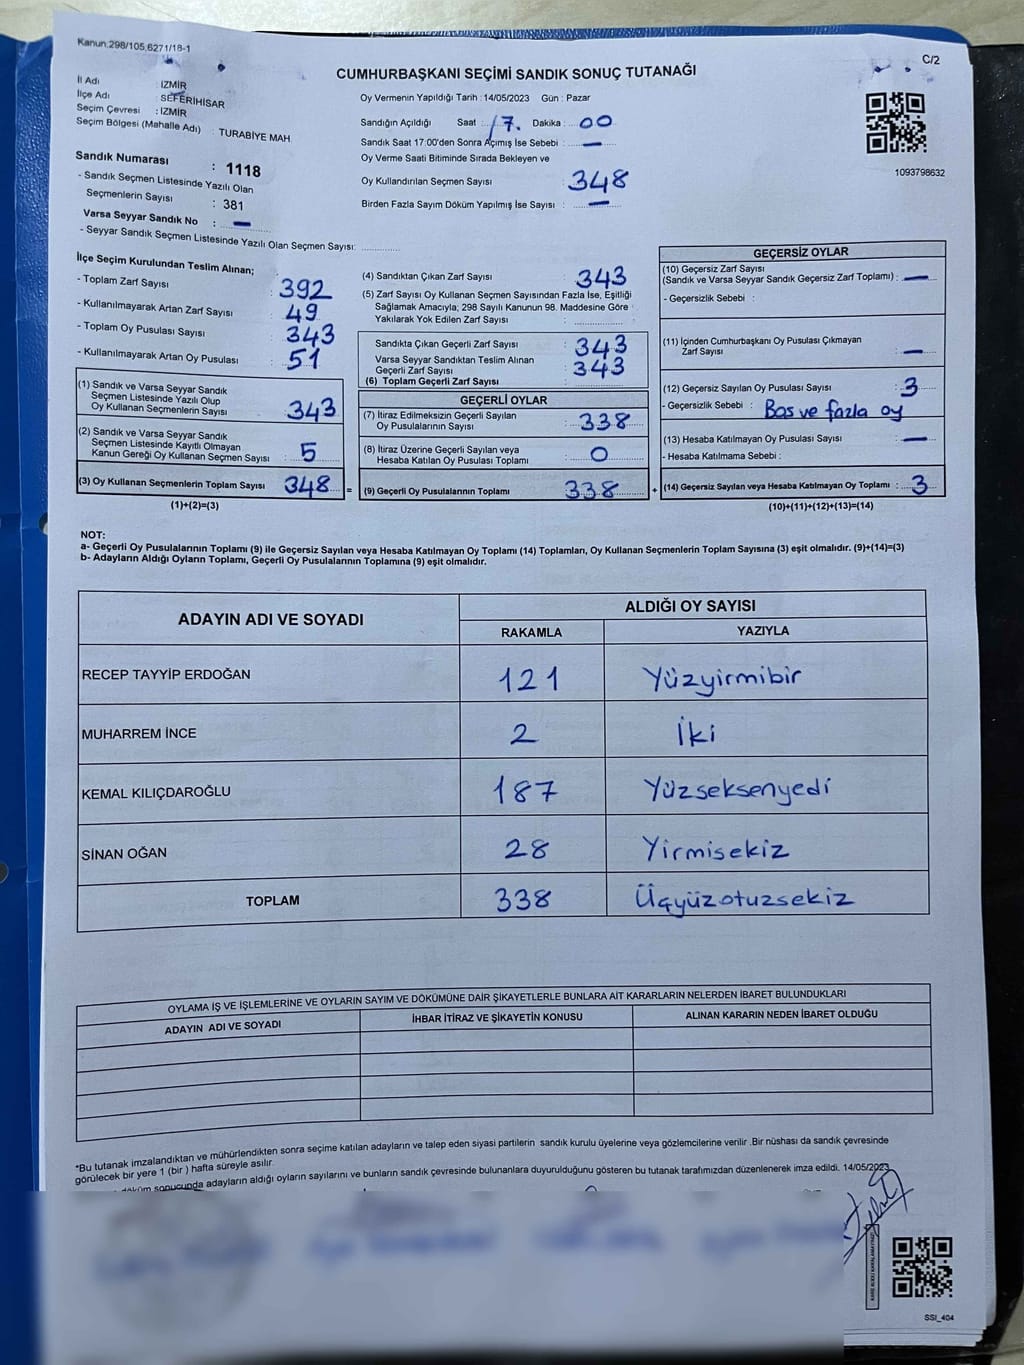 Kanun:298/105,6271/18-1
C/2
CUMHURBAŞKANI SEÇİMİ SANDIK SONUÇ TUTANAĞI
İl Adı : İZMİR
İlçe Adı : SEFERİHİSAR
Seçim Çevresi : İZMİR
Seçim Bölgesi (Mahalle Adı) : TURABİYE MAH.
Sandık Numarası : 1118
- Sandık Seçmen Listesinde Yazılı Olan
Seçmenlerin Sayısı : 381
Varsa Seyyar Sandık No : —
- Seyyar Sandık Seçmen Listesinde Yazılı Olan Seçmen Sayısı: ............
Oy Vermenin Yapıldığı Tarih :14/05/2023 Gün : Pazar
Sandığın Açıldığı Saat : 17. Dakika : 00
Sandık Saat 17:00'den Sonra Açımış İse Sebebi : —
Oy Verme Saati Bitiminde Sırada Bekleyen ve
Oy Kullandırılan Seçmen Sayısı : 348
Birden Fazla Sayım Döküm Yapılmış İse Sayısı : —
1093798632
İlçe Seçim Kurulundan Teslim Alınan;
- Toplam Zarf Sayısı : 392
- Kullanılmayarak Artan Zarf Sayısı : 49
- Toplam Oy Pusulası Sayısı : 343
- Kullanılmayarak Artan Oy Pusulası : 51
(1) Sandık ve Varsa Seyyar Sandık
Seçmen Listesinde Yazılı Olup
Oy Kullanan Seçmenlerin Sayısı : 343
(2) Sandık ve Varsa Seyyar Sandık
Seçmen Listesinde Kayıtlı Olmayan
Kanun Gereği Oy Kullanan Seçmen Sayısı : 5
(3) Oy Kullanan Seçmenlerin Toplam Sayısı : 348 =
(1)+(2)=(3)
(4) Sandıktan Çıkan Zarf Sayısı : 343
(5) Zarf Sayısı Oy Kullanan Seçmen Sayısından Fazla İse, Eşitliği
Sağlamak Amacıyla; 298 Sayılı Kanunun 98. Maddesine Göre
Yakılarak Yok Edilen Zarf Sayısı : ............
Sandıkta Çıkan Geçerli Zarf Sayısı : 343
Varsa Seyyar Sandıktan Teslim Alınan
Geçerli Zarf Sayısı : 343
(6) Toplam Geçerli Zarf Sayısı : ............
GEÇERLİ OYLAR
(7) İtiraz Edilmeksizin Geçerli Sayılan
Oy Pusulalarının Sayısı : 338
(8) İtiraz Üzerine Geçerli Sayılan veya
Hesaba Katılan Oy Pusulası Toplamı : 0
(9) Geçerli Oy Pusulalarının Toplamı : 338 +
GEÇERSİZ OYLAR
(10) Geçersiz Zarf Sayısı
(Sandık ve Varsa Seyyar Sandık Geçersiz Zarf Toplamı) : —
- Geçersizlik Sebebi :
(11) İçinden Cumhurbaşkanı Oy Pusulası Çıkmayan
Zarf Sayısı : —
(12) Geçersiz Sayılan Oy Pusulası Sayısı : 3
- Geçersizlik Sebebi : Boş ve fazla oy
(13) Hesaba Katılmayan Oy Pusulası Sayısı : —
- Hesaba Katılmama Sebebi :
(14) Geçersiz Sayılan veya Hesaba Katılmayan Oy Toplamı : 3
(10)+(11)+(12)+(13)=(14)
NOT:
a- Geçerli Oy Pusulalarının Toplamı (9) ile Geçersiz Sayılan veya Hesaba Katılmayan Oy Toplamı (14) Toplamları, Oy Kullanan Seçmenlerin Toplam Sayısına (3) eşit olmalıdır. (9)+(14)=(3)
b- Adayların Aldığı Oyların Toplamı, Geçerli Oy Pusulalarının Toplamına (9) eşit olmalıdır.
ADAYIN ADI VE SOYADI ALDIĞI OY SAYISI
RAKAMLA YAZIYLA
RECEP TAYYİP ERDOĞAN 121 Yüzyirmibir
MUHARREM İNCE 2 İki
KEMAL KILIÇDAROĞLU 187 Yüzseksenyedi
SİNAN OĞAN 28 Yirmisekiz
TOPLAM 338 Üçyüzotuzsekiz
OYLAMA İŞ VE İŞLEMLERİNE VE OYLARIN SAYIM VE DÖKÜMÜNE DAİR ŞİKAYETLERLE BUNLARA AİT KARARLARIN NELERDEN İBARET BULUNDUKLARI
ADAYIN ADI VE SOYADI İHBAR İTİRAZ VE ŞİKAYETİN KONUSU ALINAN KARARIN NEDEN İBARET OLDUĞU
*Bu tutanak imzalandıktan ve mühürlendikten sonra seçime katılan adayların ve talep eden siyasi partilerin sandık kurulu üyelerine veya gözlemcilerine verilir .Bir nüshası da sandık çevresinde
görülecek bir yere 1 (bir ) hafta süreyle asılır.
döküm sonucunda adayların aldığı oyların sayılarını ve bunların sandık çevresinde bulunanlara duyurulduğunu gösteren bu tutanak tarafımızdan düzenlenerek imza edildi. 14/05/2023
SSI_404